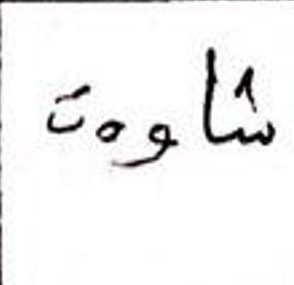 شاوەت